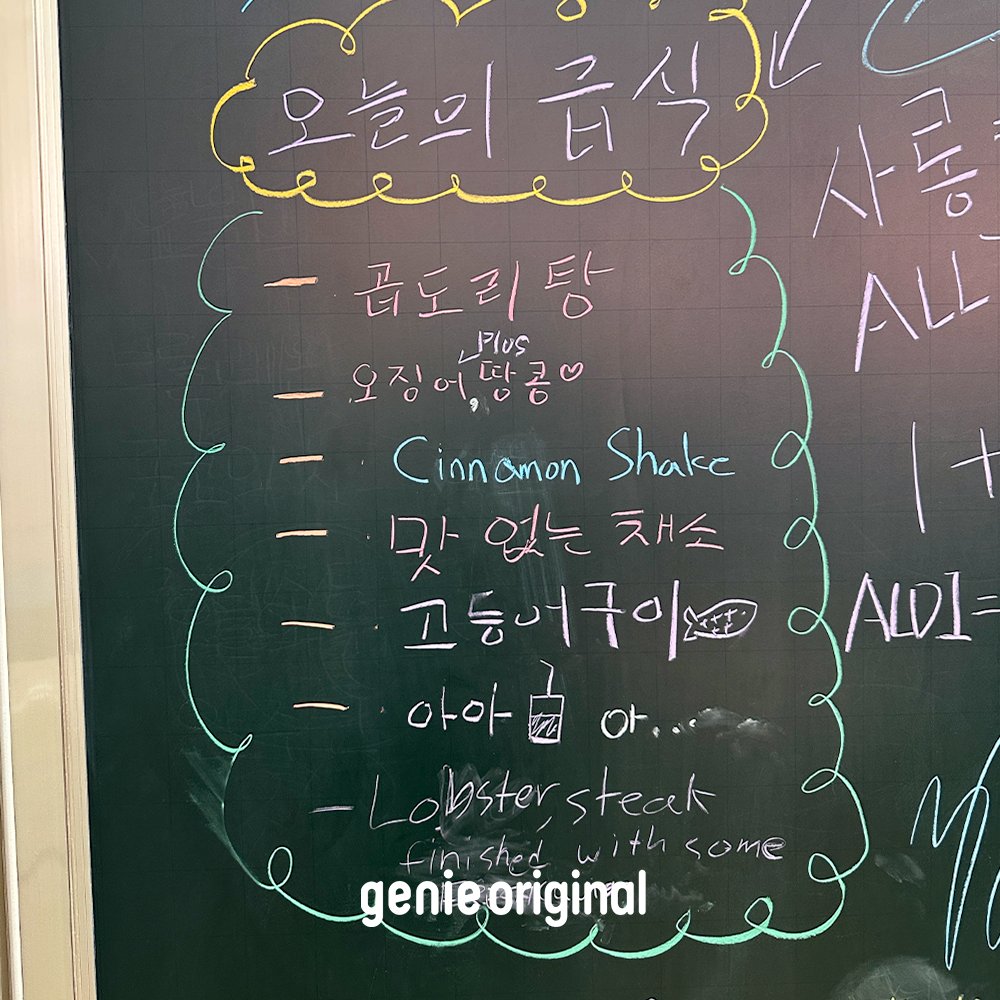 오늘의 급식
- 곱도리탕
Plus
- 오징어, 땅콩♡
- Cinnamon Shake
- 맛 없는 채소
- 고등어구이
- 아아 아..
- Lobster, steak
finished with some
genie original
사롱
ALL
1 +
ALDI=